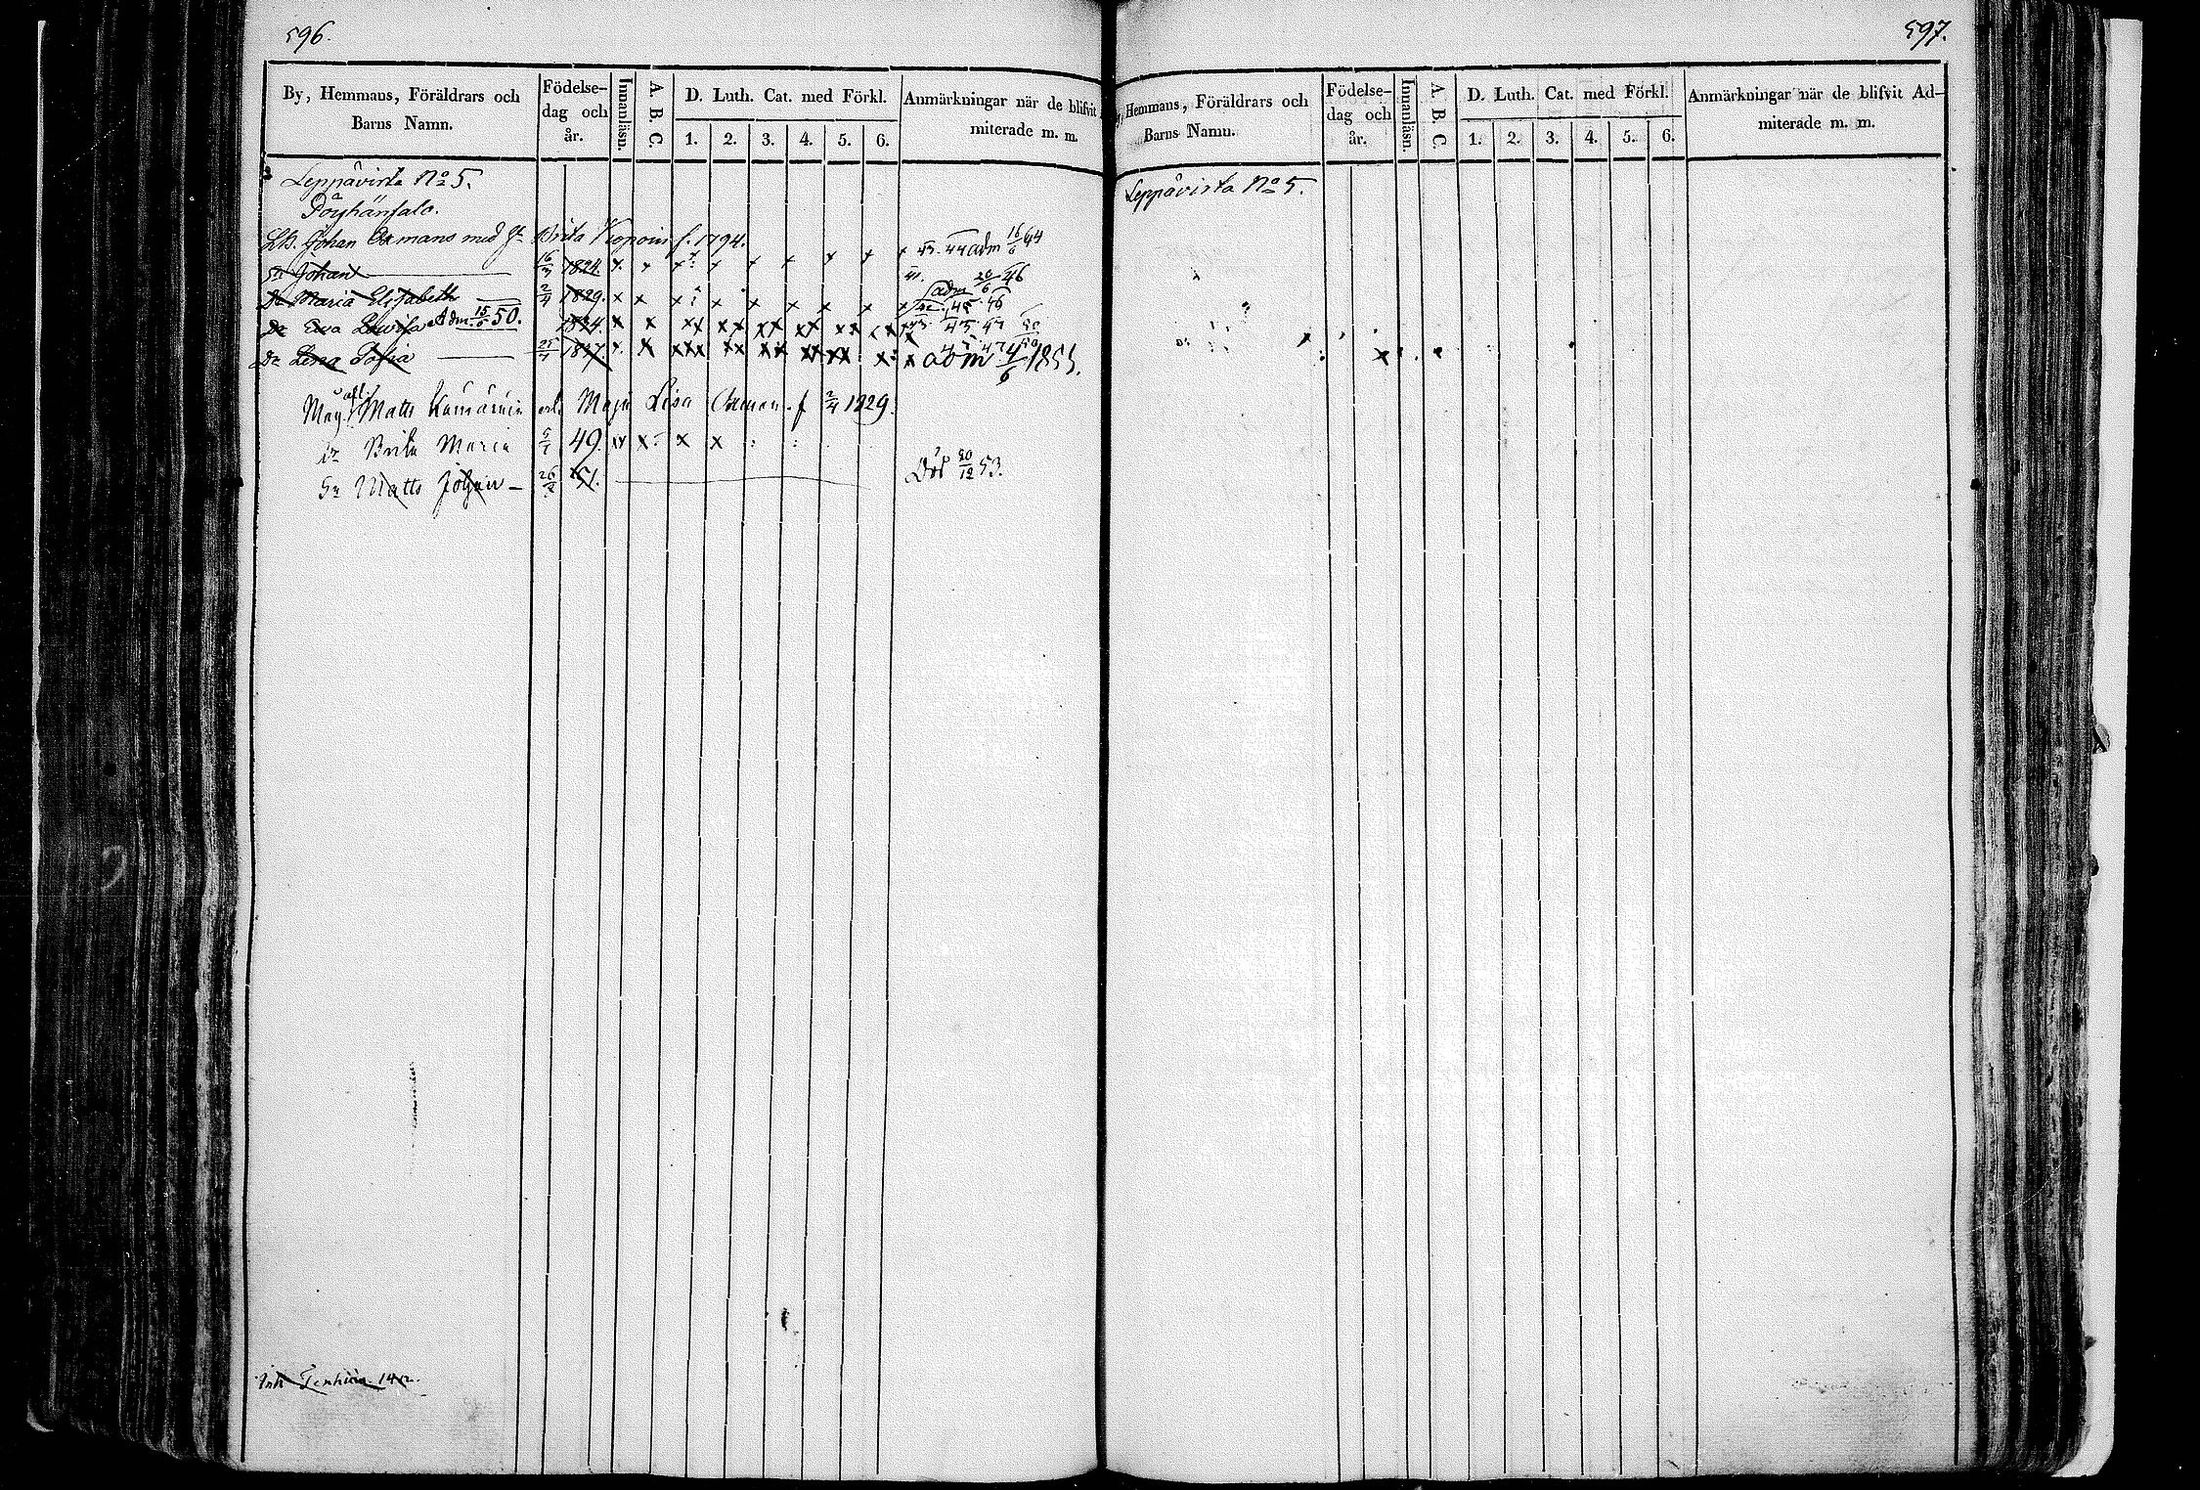 596.
By, Hemmans, Föräldrars och Barns Namn.
Födelse-dag och år.
Innanläsn.
A. B. C.
D. Luth. Cat. med Förkl.
1. 2. 3. 4. 5. 6.
Anmärkningar när de blifvit
miterade m. m.
Leppävirta No 5.
Pöyhänsalo.
Johan Oxman med H. Brita Kopoin f. 1794.
Sn Johan 16/3 1824. x x x x x x x x 43. 44 adm 16/6 44
Dr Maria Elisabeth 2/4 1829. x x x x x x x x adm 20/6 46
45 46
Dr Eva Lovisa Adm. 15/6 50. 1834. x x xx xx xx xx xx xx 45 47
Dr Lena Sofia 25/4 1837. x. x xxx xx xx xx xx x x adm 4/6 1853.
Matts och Maja Lisa Oxman f 2/4 1829.
Dr Brita Maria 49. x x x x
Sn Matts Johan 26/2 51. Död 30/12 53.
597.
Hemmans, Föräldrars och Barns Namn.
Födelse-dag och år.
Innanläsn.
A. B. C.
D. Luth. Cat. med Förkl.
1. 2. 3. 4. 5. 6.
Anmärkningar när de blifvit Ad-
miterade m. m.
Leppävirta No 5.